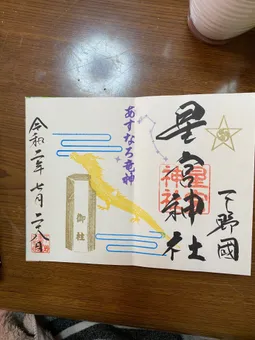 下野國
星宮神社
星宮
神社
あすなろ竜神
御柱
令和二年七月二十八日